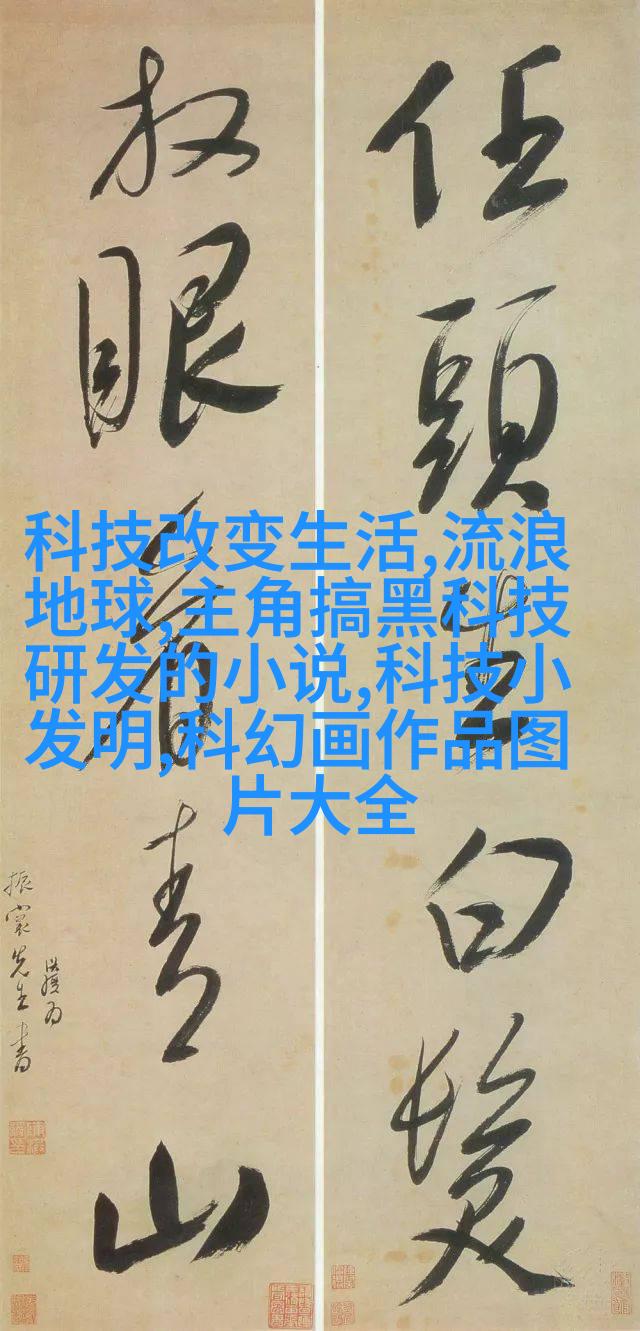 任頭生白髮
放眼看青山
振裳先生書
科技改变生活,流浪
地球,主角搞黑科技
研发的小说,科技小
发明,科幻画作品图
片大全